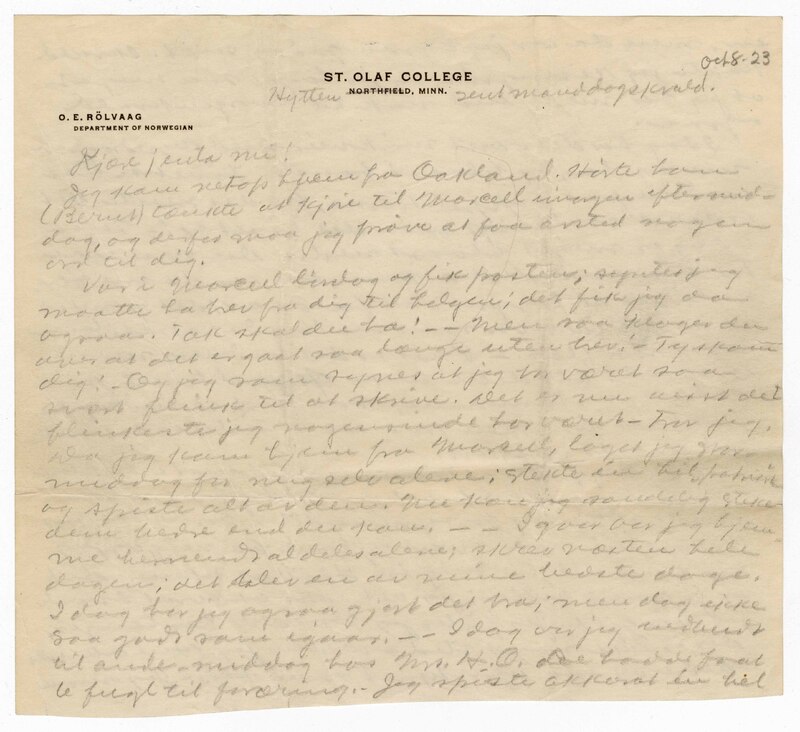 Oct 8-23
ST. OLAF COLLEGE
NORTHFIELD, MINN.
Hytten sent manddagskveld.
O. E. RÖLVAAG
DEPARTMENT OF NORWEGIAN
Kjære jenta mi!
Jeg kom netop hjem fra Oakland. Hørte han
(Bernt) tænkte at kjøre til Marcell imorgen eftermid-
dag, og derfor maa jeg prøve at faa avsted nogen
ord til dig.
Var i Marcell lørdag og fik posten; syntes jeg
maatte ha brev fra dig til helgen; det fik jeg da
ogsaa. Tak skal du ha! -- Men saa klager du
over at det er gaat saa længe uten brev! - Ty skam
dig! - Og jeg som synes at jeg har været saa
svært flink til at skrive. Det er nu visst det
flinkeste jeg nogensinde har været - tror jeg.
Da jeg kom hjem fra Marcell, laget jeg stor
middag for mig selv alene; stekte én hel
og spiste alt av den. Nu kan jeg sandelig steke
dem bedre end du kan. -- Igaar var jeg hjem-
me aldeles alene; skrev næsten hele
dagen; det blev en av mine bedste dage.
I dag har jeg ogsaa gjort det bra; men dog ikke
saa godt som igaar. -- I dag var jeg indbudt
til ande-middag hos Mrs. H.O. de hadde faat
fugl til foræring. - Jeg spiste akkorat én hel